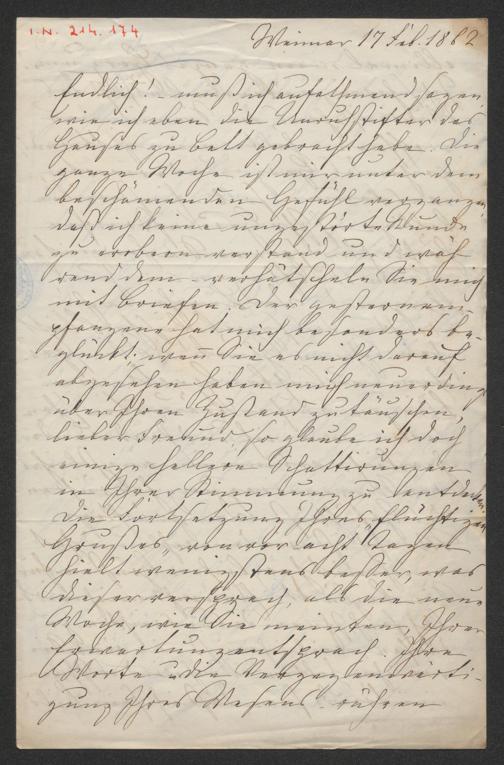 I.N. 214.174
Weimar 17 Feb. 1882
Endlich! – muß ich aufathmend sagen
wie ich eben die Unruhstifter des
Hauses zu Bett gebracht habe. Die
ganze Woche ist mir unter dem
beschämenden Gefühl vergangen,
daß ich keine ungestörte Stunde
zu erobern verstand und wäh-
rend dem verhätscheln Sie mich
mit Briefen. Der gestern em-
pfangene hat mich besonders be-
glückt; wenn Sie es nicht darauf
abgesehen haben mich neuerdings
über Ihren Zustand zu täuschen,
lieber Freund, so glaube ich doch
einige hellere Schattirungen
in Ihrer Stimmung zu entdecken.
Die Fortsetzung Ihres flüchtigen
Grußes, von vor acht Tagen
hielt wenigstens besser, was
dieser versprach, als die neue
Woche, wie Sie meinten, Ihrer
Erwartung entsprach. Ihre
Worte u. die Vergegenwärti-
gung Ihres Wesens rühren